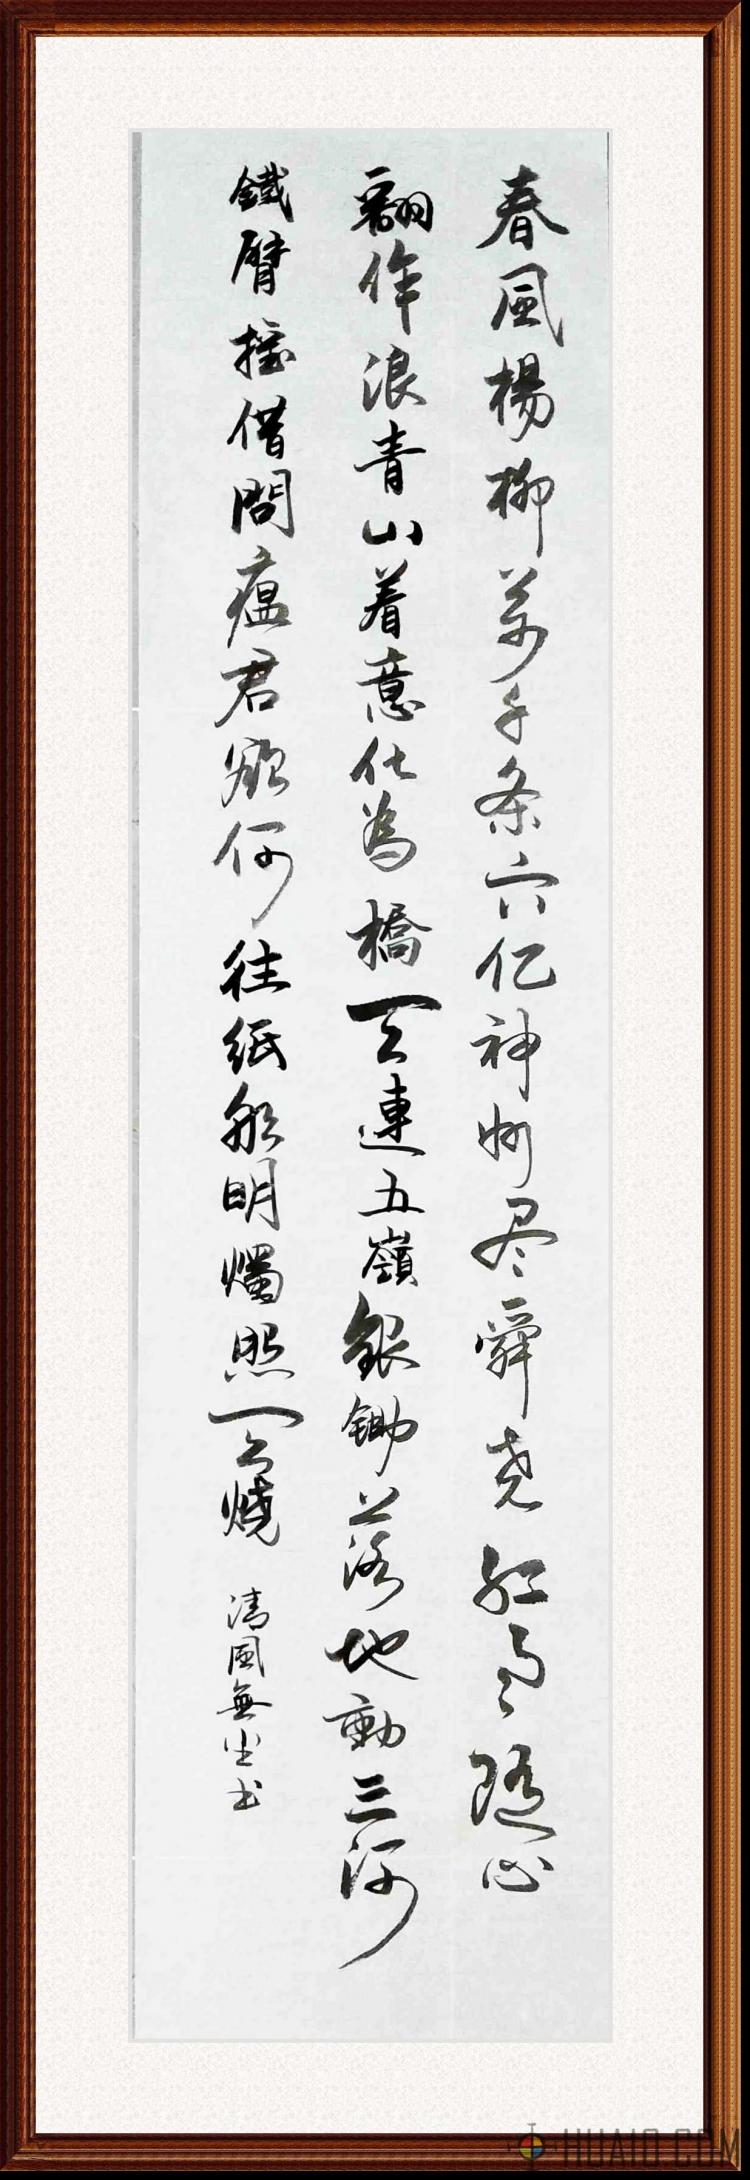 春風楊柳萬千条六亿神州尽舜尧红雨随心
翻作浪青山着意化為橋天連五嶺銀锄落地動三河
鐵臂摇借問瘟君欲何往纸船明燭照天燒
清風無尘书
HUAIO.COM